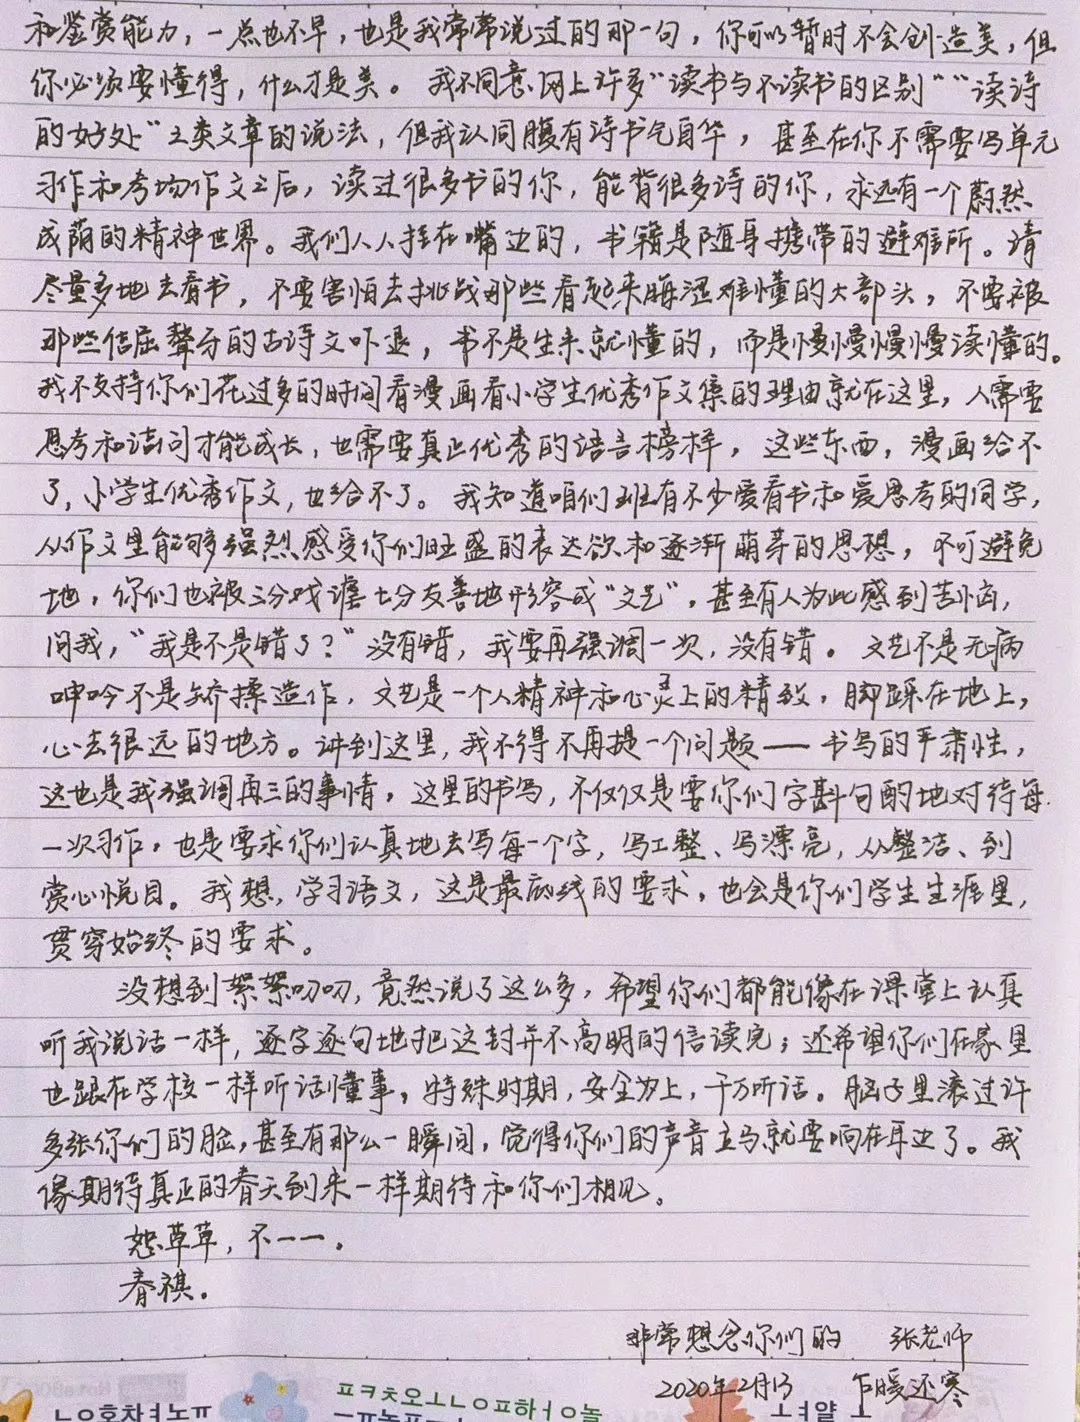 和鉴赏能力，一点也不早，也是我常常说过的那一句，你可以暂时不会创造美，但
你必须要懂得，什么才是美。我不同意网上许多“读书与不读书的区别”“读诗
的好处”之类文章的说法，但我认同腹有诗书气自华，甚至在你不需要写单元
习作和考场作文之后，读过很多书的你，能背很多诗的你，永远有一个蔚然
成荫的精神世界。我们人人挂在嘴边的，书籍是随身携带的避难所。请
尽量多地去看书，不要害怕去挑战那些看起来晦涩难懂的大部头，不要被
那些佶屈聱牙的古诗文吓退，书不是生来就懂的，而是慢慢慢慢读懂的。
我不支持你们花过多的时间看漫画看小学生优秀作文集的理由就在这里，人需要
思考和诘问才能成长，也需要真正优秀的语言榜样，这些东西，漫画给不
了，小学生优秀作文，也给不了。我知道咱们班有不少爱看书和爱思考的同学，
从作文里能够强烈感受你们旺盛的表达欲和逐渐萌芽的思想，不可避免
地，你们也被三分戏谑七分友善地形容成“文艺”，甚至有人为此感到苦恼，
问我，“我是不是错了？”没有错，我要再强调一次，没有错。文艺不是无病
呻吟不是矫揉造作，文艺是一个人精神和心灵上的精致，脚踩在地上，
心去很远的地方。讲到这里，我不得不再提一个问题——书写的严肃性，
这也是我强调再三的事情，这里的书写，不仅仅是要你们字斟句酌地对待每
一次习作，也是要求你们认真地去写每一个字，写工整、写漂亮，从整洁、到
赏心悦目。我想，学习语文，这是最底线的要求，也会是你们学生生涯里，
贯穿始终的要求。
没想到絮絮叨叨，竟然说了这么多，希望你们都能像在课堂上认真
听我说话一样，逐字逐句地把这封并不高明的信读完；还希望你们在家里
也跟在学校一样听话懂事，特殊时期，安全为上，千万听话。脑子里滚过许
多张你们的脸，甚至有那么一瞬间，觉得你们的声音立马就要响在耳边了。我
像期待真正的春天到来一样期待和你们相见。
恕草草，不一一。
春祺。
非常想念你们的 张老师
2020年2月13 乍暖还寒
ㅍㅋㅊ오ㅗㄴㅇㅍ하ㅓㅇ놀